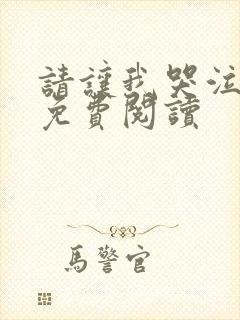 請讓我哭泣
免費閱讀
馬警官